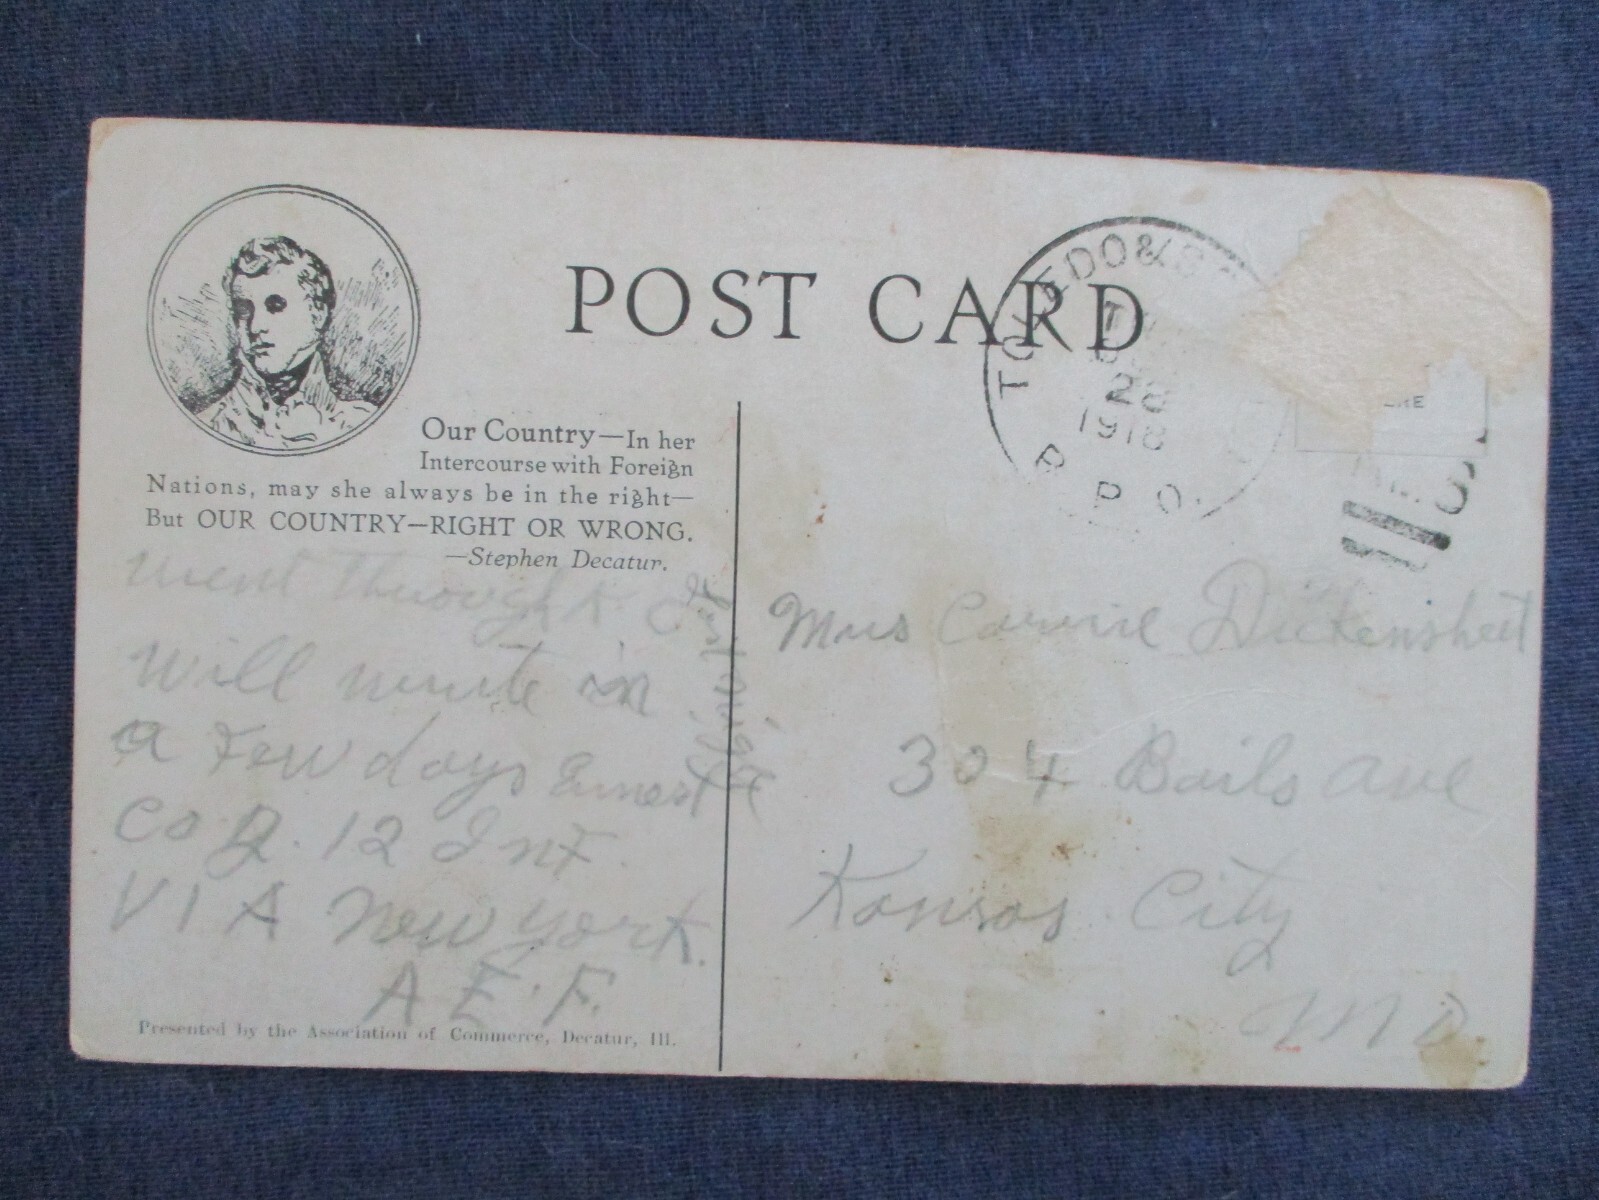 POST CARD
Our Country—In her
Intercourse with Foreign
Nations, may she always be in the right—
But OUR COUNTRY—RIGHT OR WRONG.
—Stephen Decatur.
went through. I
will write in
a few days Ernest
Co D. 12 Inf.
VIA New York.
A.E.F.
Presented by the Association of Commerce, Decatur, Ill.
TOLEDO &
28
1918
R. P. O.
Mrs Carrie Dickensheet
304 Bails ave
Kansas City
Mo.